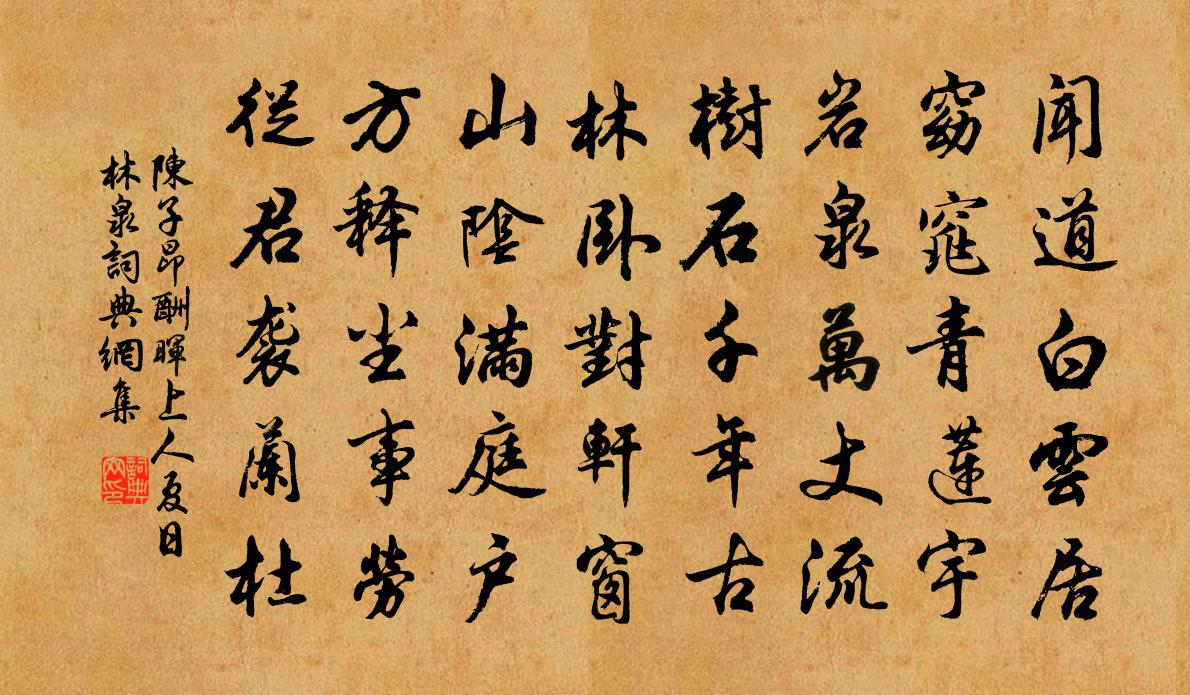 闻道白雲居
窈窕青蓮宇
岩泉萬丈流
樹石千年古
林卧對軒窗
山陰滿庭户
方释尘事勞
從君袭蘭杜
陳子昂酬暉上人夏日
林泉詞典網集
詞典
网印